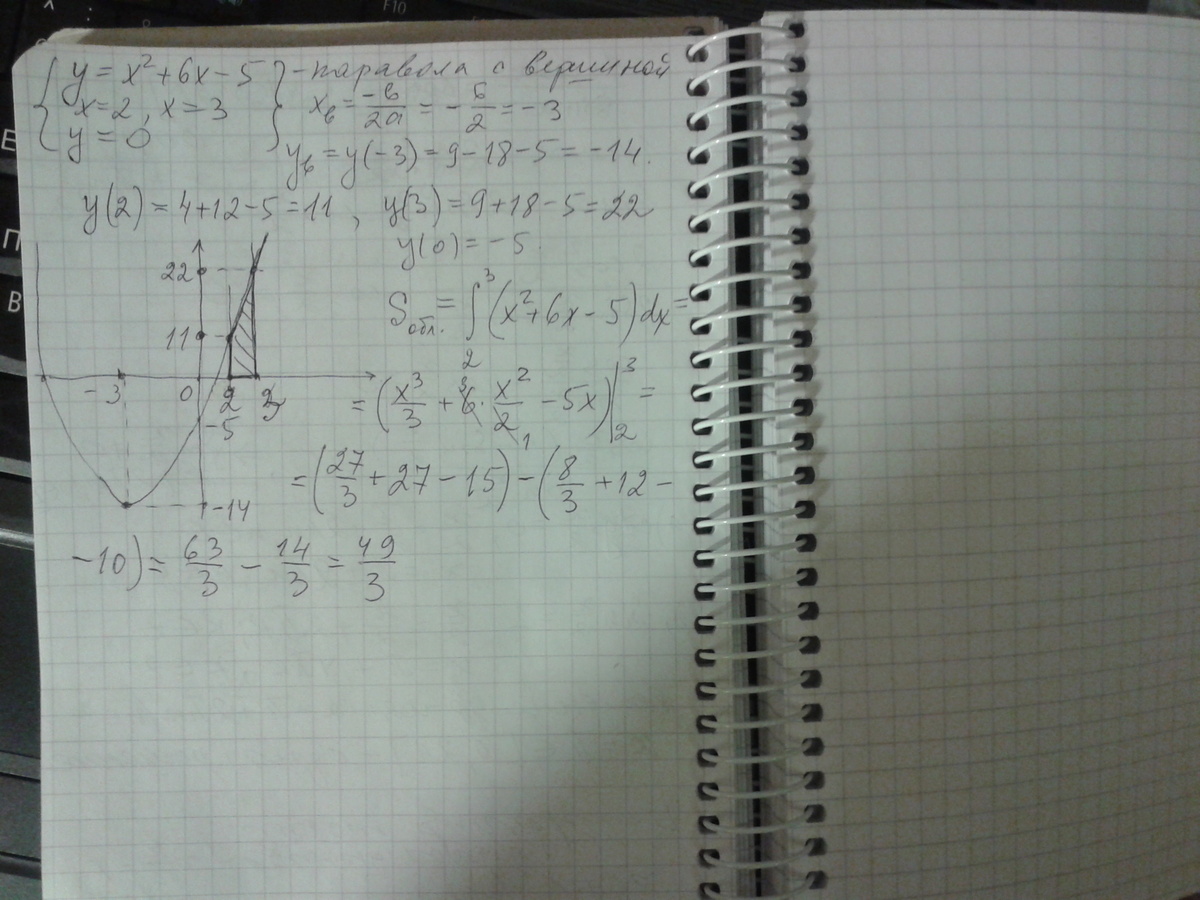 { y = x² + 6x - 5 } - паравола с вершиной
x = 2, x = 3
y = 0
xв = -b/2a = -6/2 = -3
yв = y(-3) = 9 - 18 - 5 = -14.
y(2) = 4 + 12 - 5 = 11, y(3) = 9 + 18 - 5 = 22
y(0) = -5.
22
11
-3 0 2 3
-5
-14
Sобл. = ∫₂³ (x² + 6x - 5) dx =
= (x³/3 + 6 · x²/2 - 5x) |₂³ =
= (27/3 + 27 - 15) - (8/3 + 12 -
- 10) = 63/3 - 14/3 = 49/3
F10